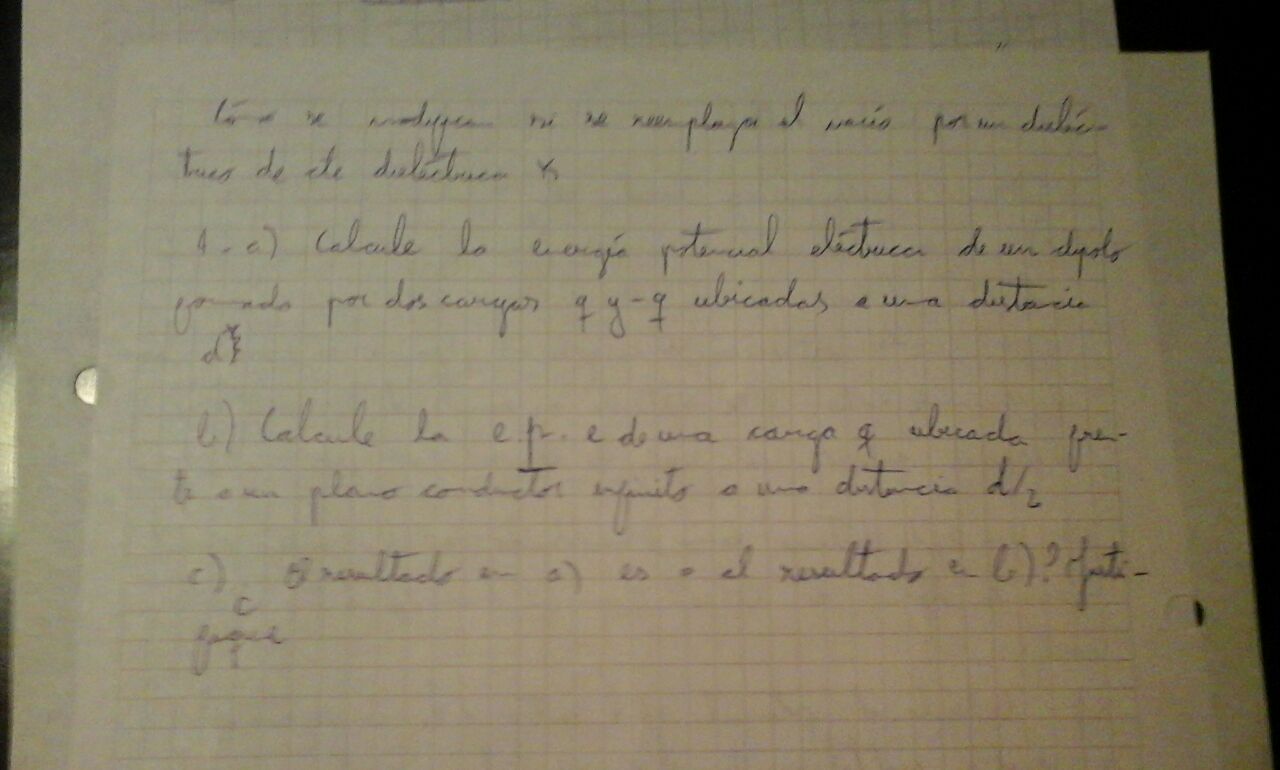 Cómo se modifican si se reemplaza el vacío por un dieléc-
trico de cte dieléctrica κ
1. a) Calcule la energía potencial eléctrica de un dipolo
formado por dos cargas q y -q ubicadas a una distancia
d
b) Calcule la e.p.e de una carga q ubicada fren-
te a un plano conductor infinito a una distancia d/2
c) El resultado en a) es = al resultado en b)? Justi-
fique